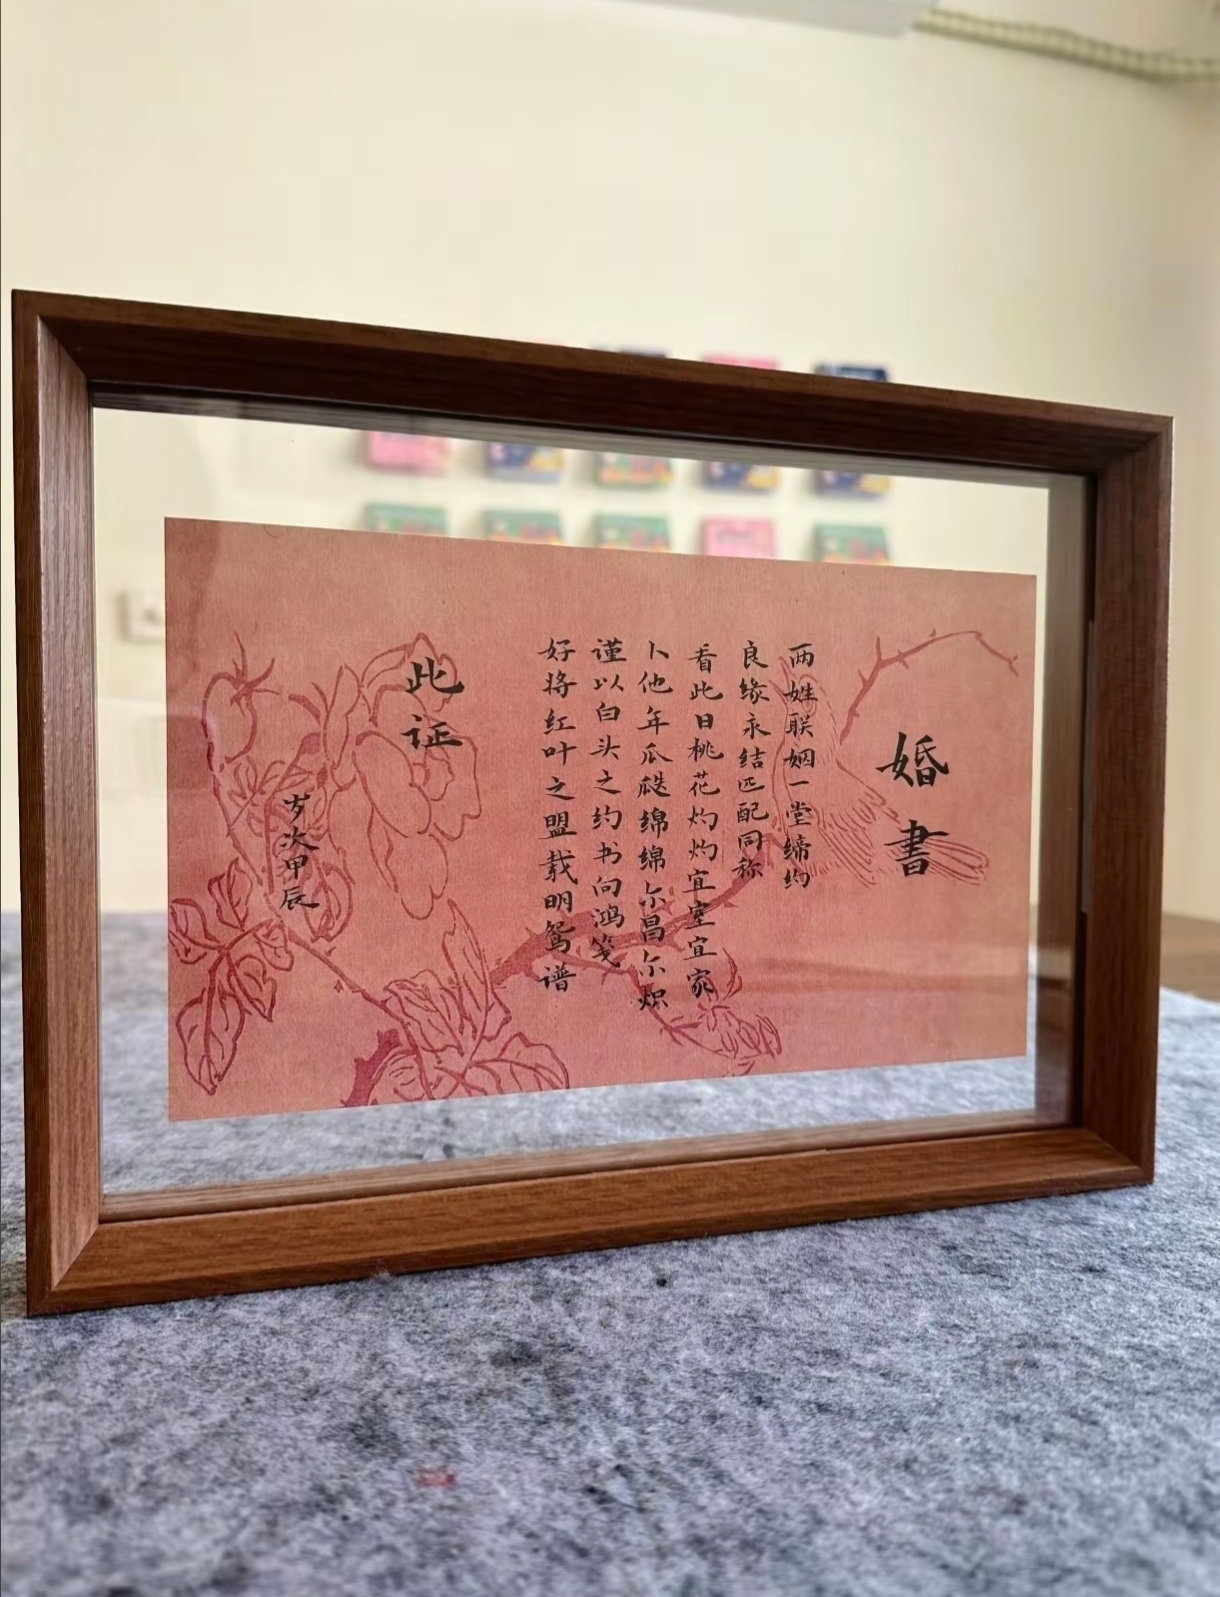 婚書
两姓联姻一堂缔约
良缘永结匹配同称
看此日桃花灼灼宜室宜家
卜他年瓜瓞绵绵尓昌尓炽
谨以白头之约书向鸿笺
好将红叶之盟载明鸳谱
此证
岁次甲辰